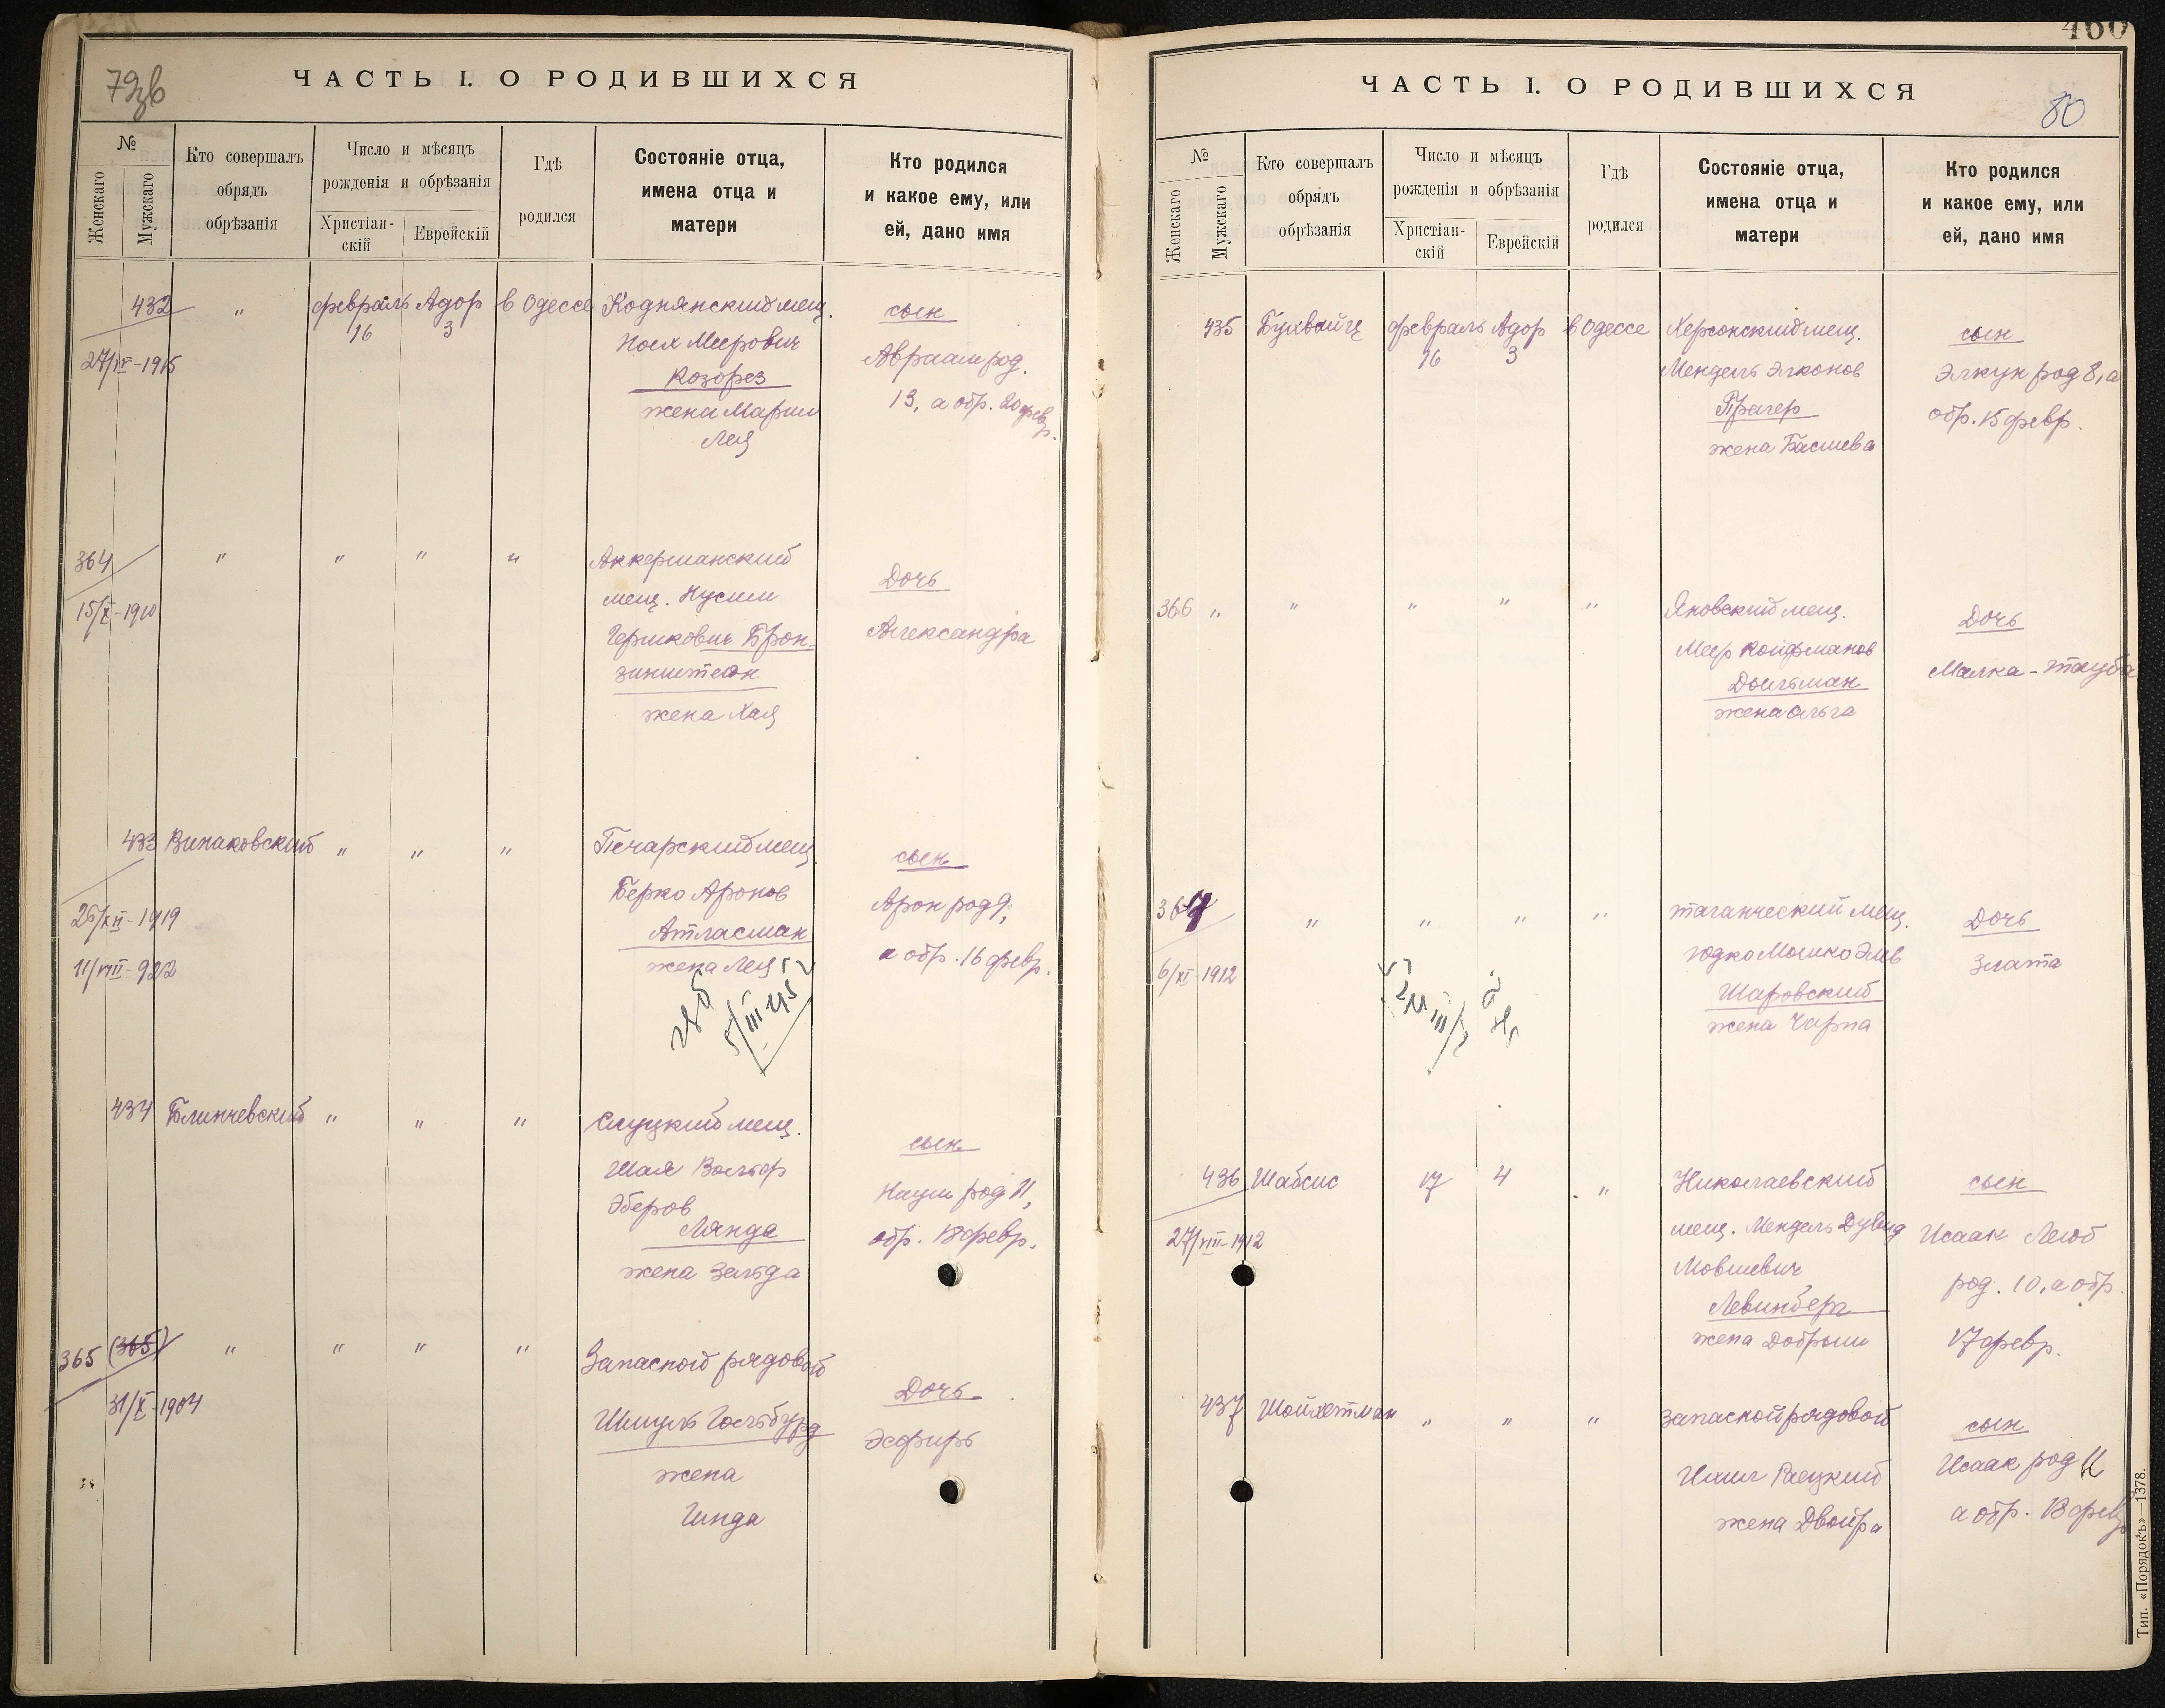 79зв
ЧАСТЬ I. О РОДИВШИХСЯ
№
Женскаго
Мужскаго
Кто совершалъ
обрядъ
обрѣзанія
Число и мѣсяцъ
рожденія и обрѣзанія
Христіан-
скій
Еврейскій
Гдѣ
родился
Состояніе отца,
имена отца и
матери
Кто родился
и какое ему, или
ей, дано имя
432 " февраль Адор в Одессе Коднянский мещ. сын
16 3 Ноех Меерович
27/IV-1915 Козорез Авраам род.
жена Мариам 13, а обр. 20 февр.
Лея
364 " " " " Аккерманский Дочь
15/X-1910 мещ. Нусим
Гершкович Брон- Александра
зинштеон
жена Хая
433 Винаковский " " " Печарский мещ. сын
Берко Аронов Арон род 9,
26/XII-1919 Атласман
11/VIII-922 жена Лея а обр. 16 февр.
5/III 45
434 Блинчевский " " " Слуцкий мещ. сын
Шая Вольф Наум род 11,
Эберов
Лянда обр. 18 февр.
жена Зельда
365 (365) " " " " Запасной рядовой Дочь
31/X-1904 Шмуль Гольбурд Эсфирь
жена
Гинда
460
ЧАСТЬ I. О РОДИВШИХСЯ
80
№
Женскаго
Мужскаго
Кто совершалъ
обрядъ
обрѣзанія
Число и мѣсяцъ
рожденія и обрѣзанія
Христіан-
скій
Еврейскій
Гдѣ
родился
Состояніе отца,
имена отца и
матери
Кто родился
и какое ему, или
ей, дано имя
435 февраль Адор в Одессе Херсонский мещ. сын
16 3 Мендель Элконов Элкун род 8, а
Прагер обр. 15 февр.
жена Басшева
366 " " " " " Яновский мещ. Дочь
Меер Койфманов Малка-Тауба
Доильман
жена Ольга
367 " " " " Таганческий мещ. Дочь
6/XI-1912 Юдко Мошко Элев Злата
Шаровский
жена Чарна
436 Шабсис 17 4 " Николаевский сын
27/VIII-1912 мещ. Мендель Дувид Исаак Лейб
Мовшевич род. 10, а обр.
Левинберг
жена Добрыш 17 февр.
437 Шойхетман " " " Запасной рядовой сын
Ихил Раецкий Исаак род 11
жена Двойра а обр. 18 февр
Тип. «Порядокъ»—1378.